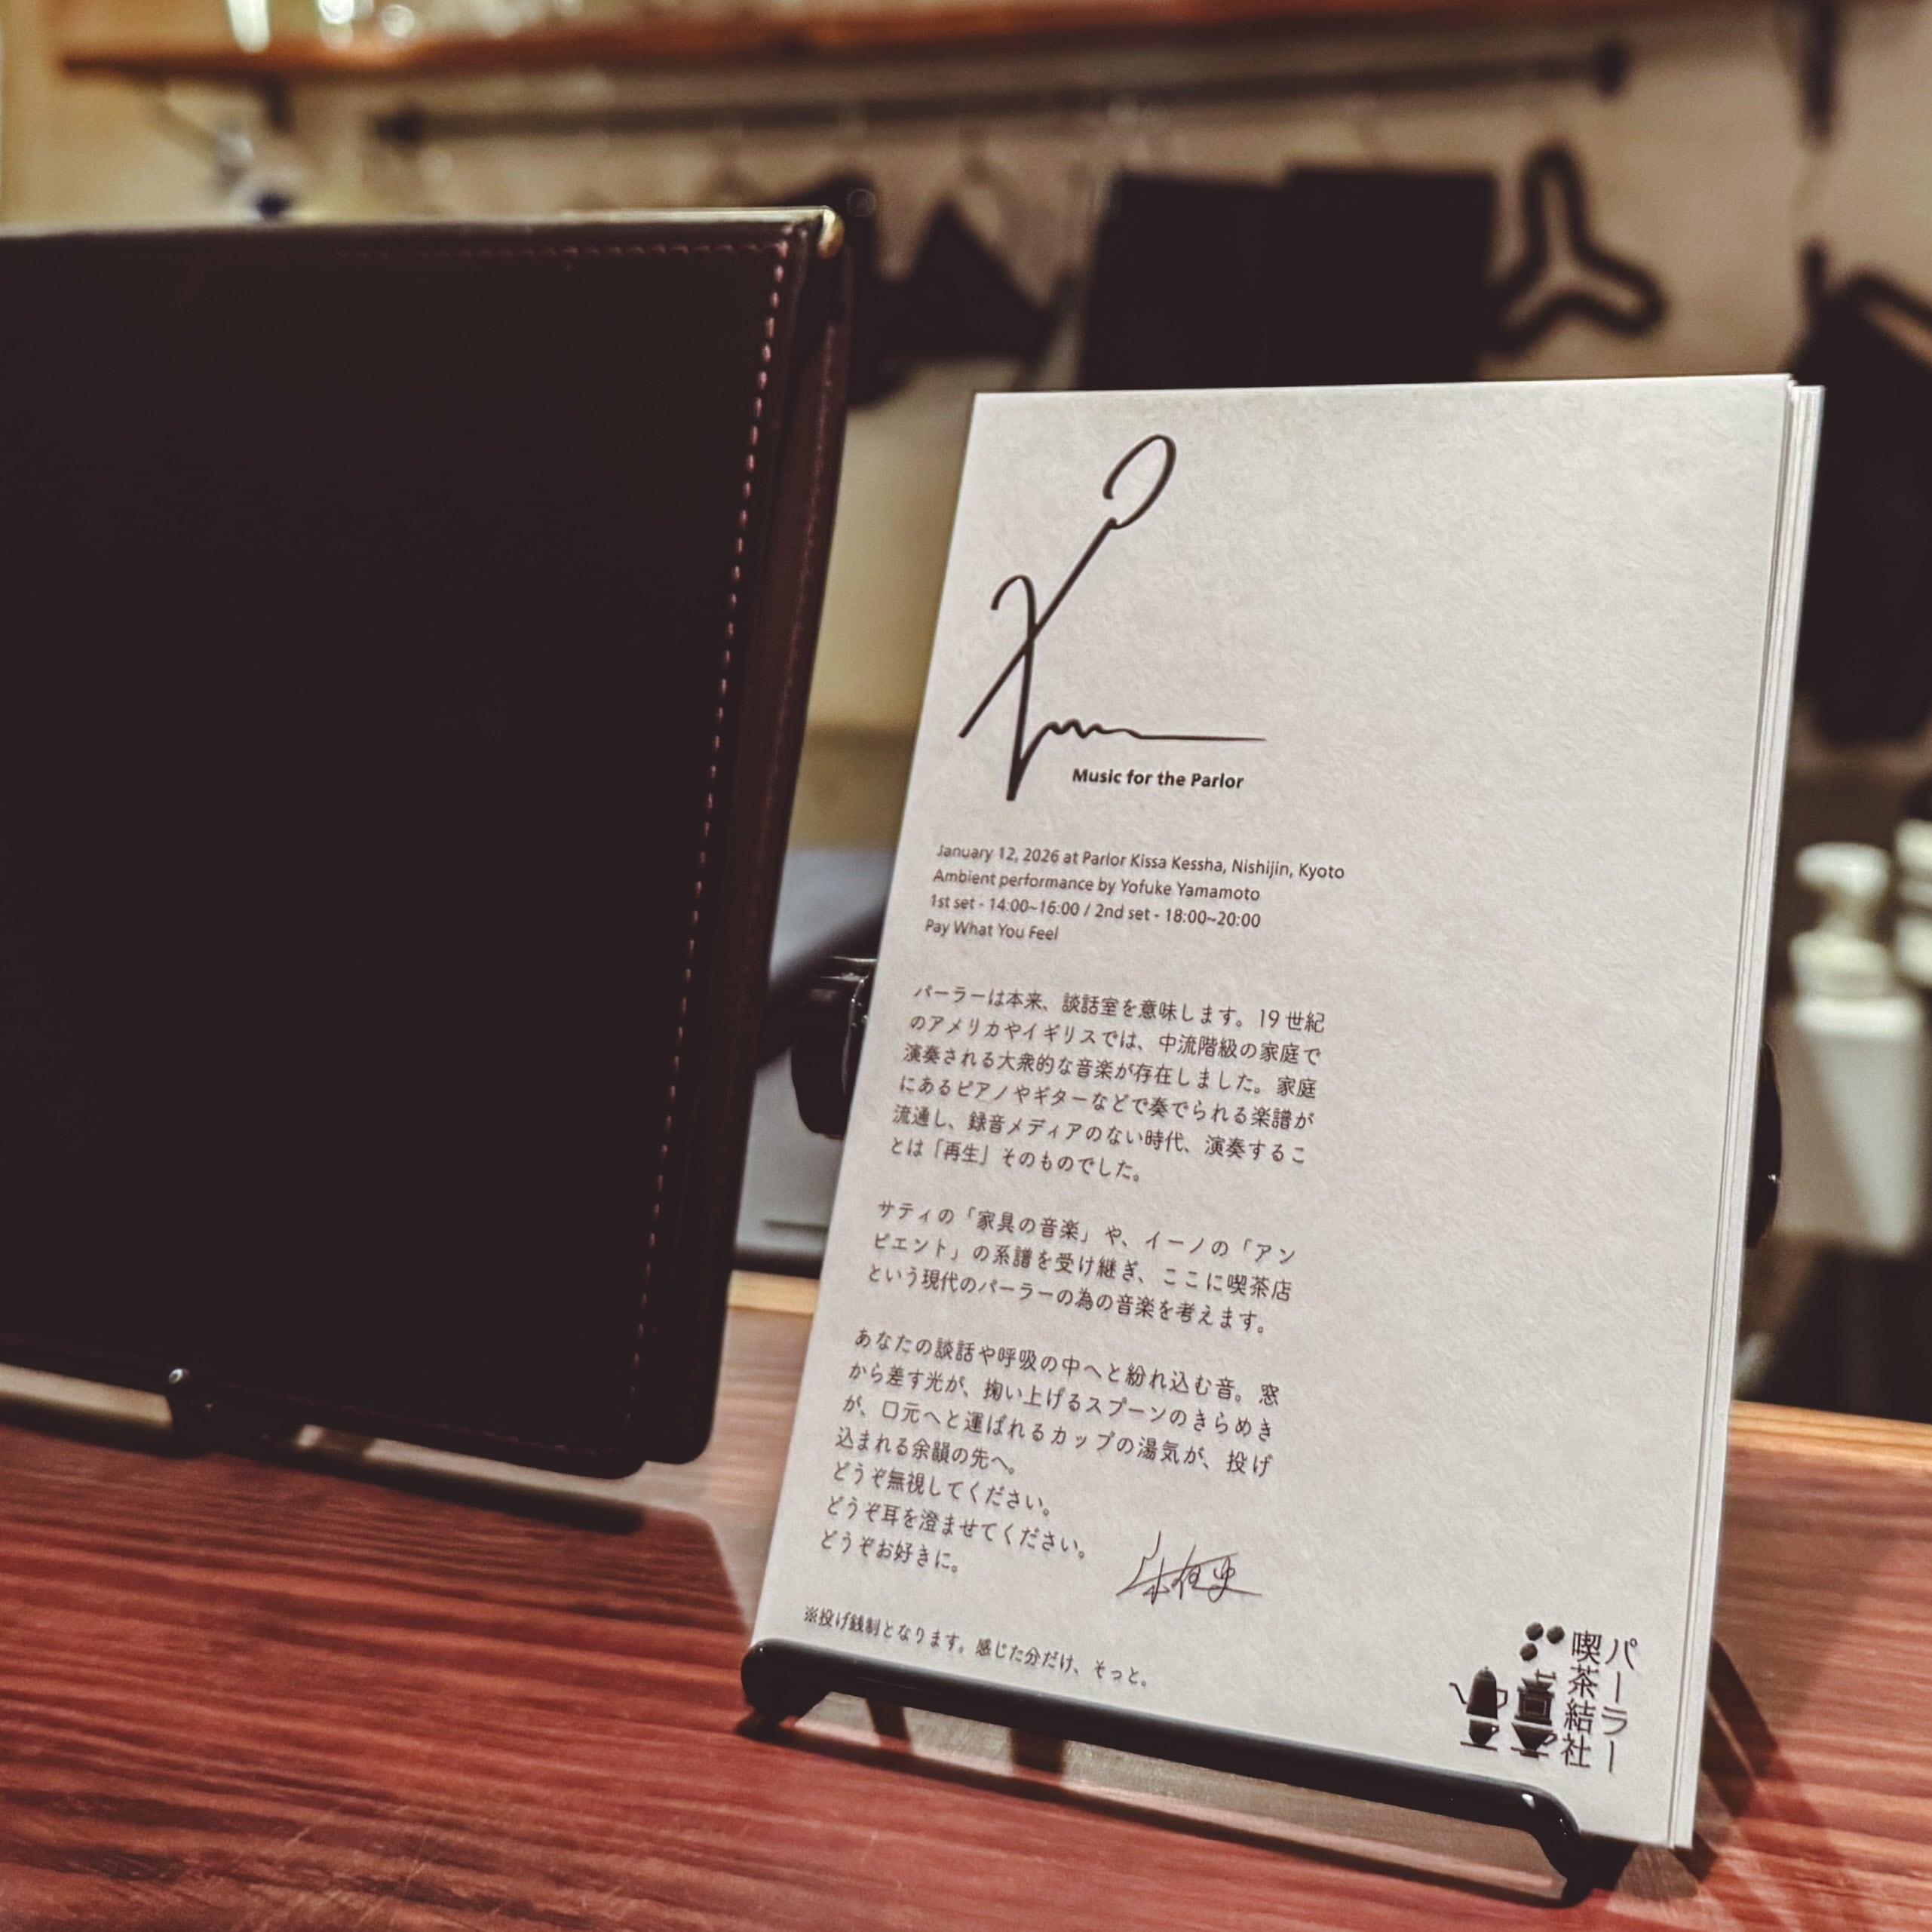 Music for the Parlor
January 12, 2026 at Parlor Kissa Kessha, Nishijin, Kyoto
Ambient performance by Yofuke Yamamoto
1st set - 14:00~16:00 / 2nd set - 18:00~20:00
Pay What You Feel
パーラーは本来、談話室を意味します。19世紀
のアメリカやイギリスでは、中流階級の家庭で
演奏される大衆的な音楽が存在しました。家庭
にあるピアノやギターなどで奏でられる楽譜が
流通し、録音メディアのない時代、演奏するこ
とは「再生」そのものでした。
サティの「家具の音楽」や、イーノの「アン
ビエント」の系譜を受け継ぎ、ここに喫茶店
という現代のパーラーの為の音楽を考えます。
あなたの談話や呼吸の中へと紛れ込む音。窓
から差す光が、掬い上げるスプーンのきらめき
が、口元へと運ばれるカップの湯気が、投げ
込まれる余韻の先へ。
どうぞ無視してください。
どうぞ耳を澄ませてください。
どうぞお好きに。
※投げ銭制となります。感じた分だけ、そっと。
パーラー
喫茶結社